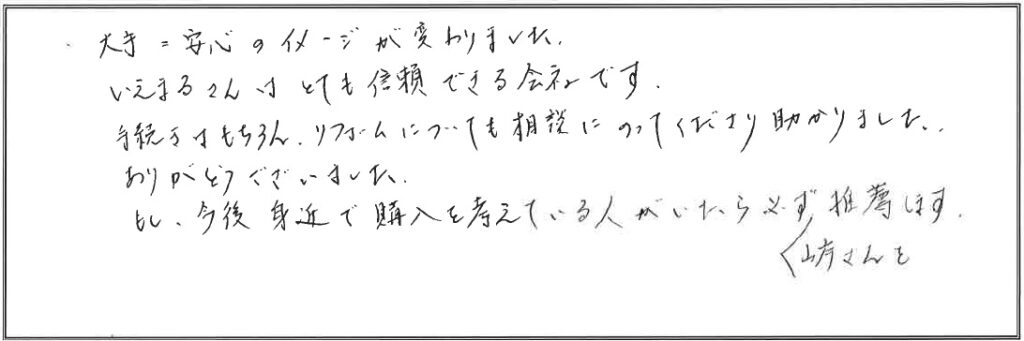 大手=安心のイメージが変わりました.
いえまるさんはとても信頼できる会社です.
手続きはもちろん、リフォームについても相談にのってくださり助かりました.
ありがとうございました.
もし、今後身近で購入を考えている人がいたら必ず推薦します.
崎さんを